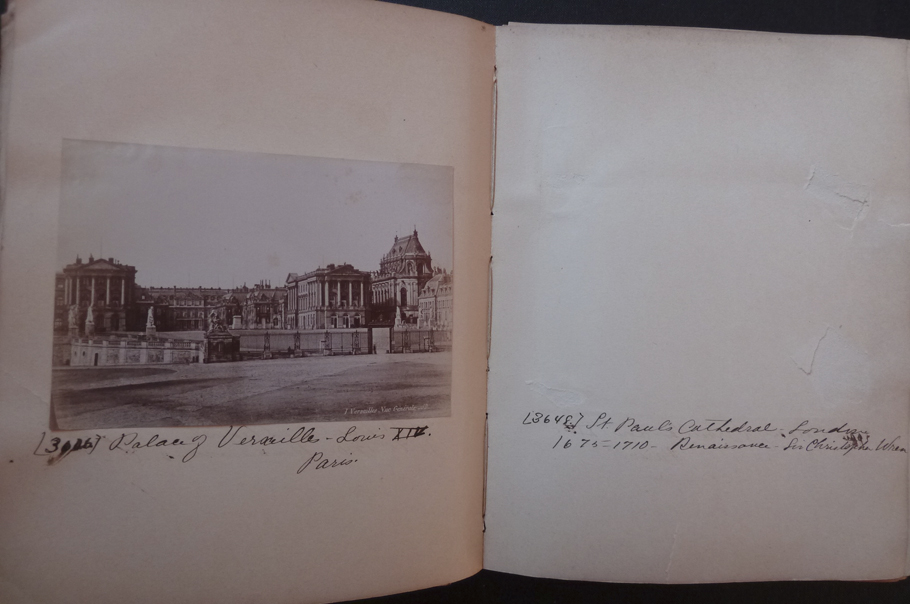 Palace of Versailles - Louis XIV.
Paris.
1 Versailles, Vue
[3648] St Pauls Cathedral - London
1675-1710 - Renaissance - Sir Christopher Wren